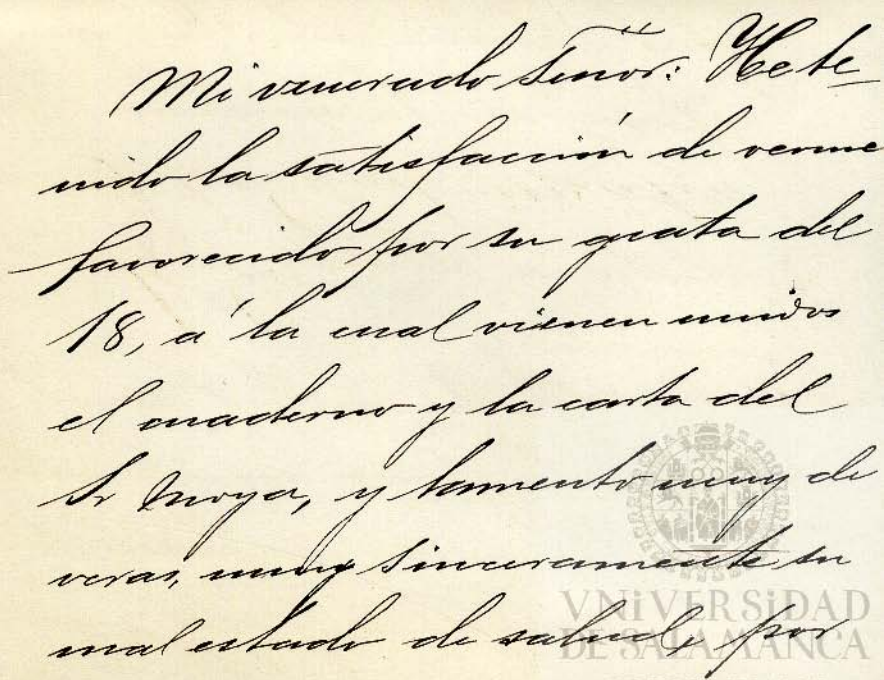 Mi venerado Señor: He te_
nido la satisfacción de verme
favorecido por su grata del
18, á la cual vienen unidos
el cuaderno y la carta del
Sr Moya, y lamento muy de
veras, muy sinceramente su
mal estado de salud, por
VNiVERSiDAD
DE SALAMANCA